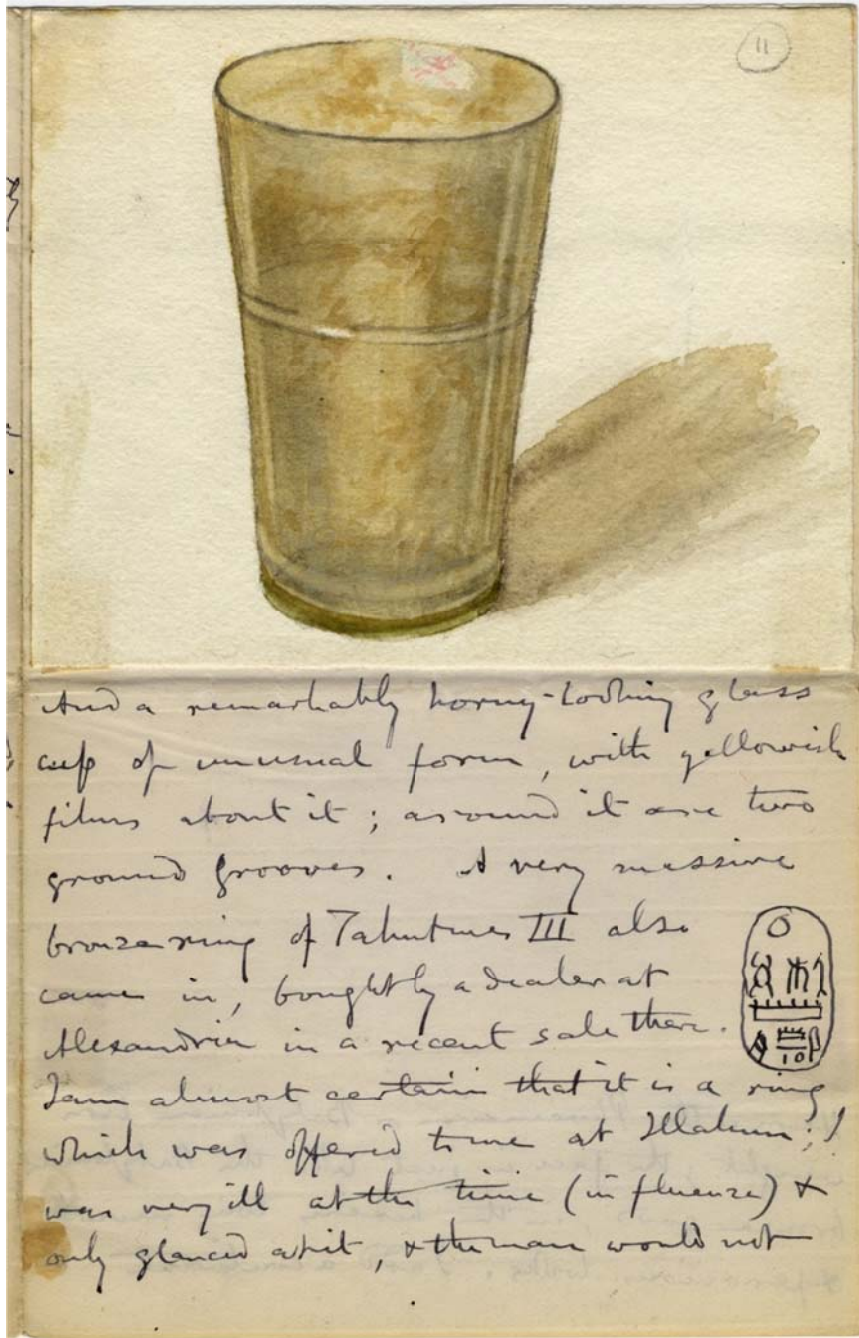 11
And a remarkably horny-looking glass
cup of unusual form, with yellowish
films about it; around it are two
ground grooves. A very massive
bronze ring of Tahutmes III also
came in, bought by a dealer at
Alexandria in a recent sale there.
I am almost certain that it is a ring
which was offered to me at Illahun; I
was very ill at the time (influenza) &
only glanced at it, & the man would not